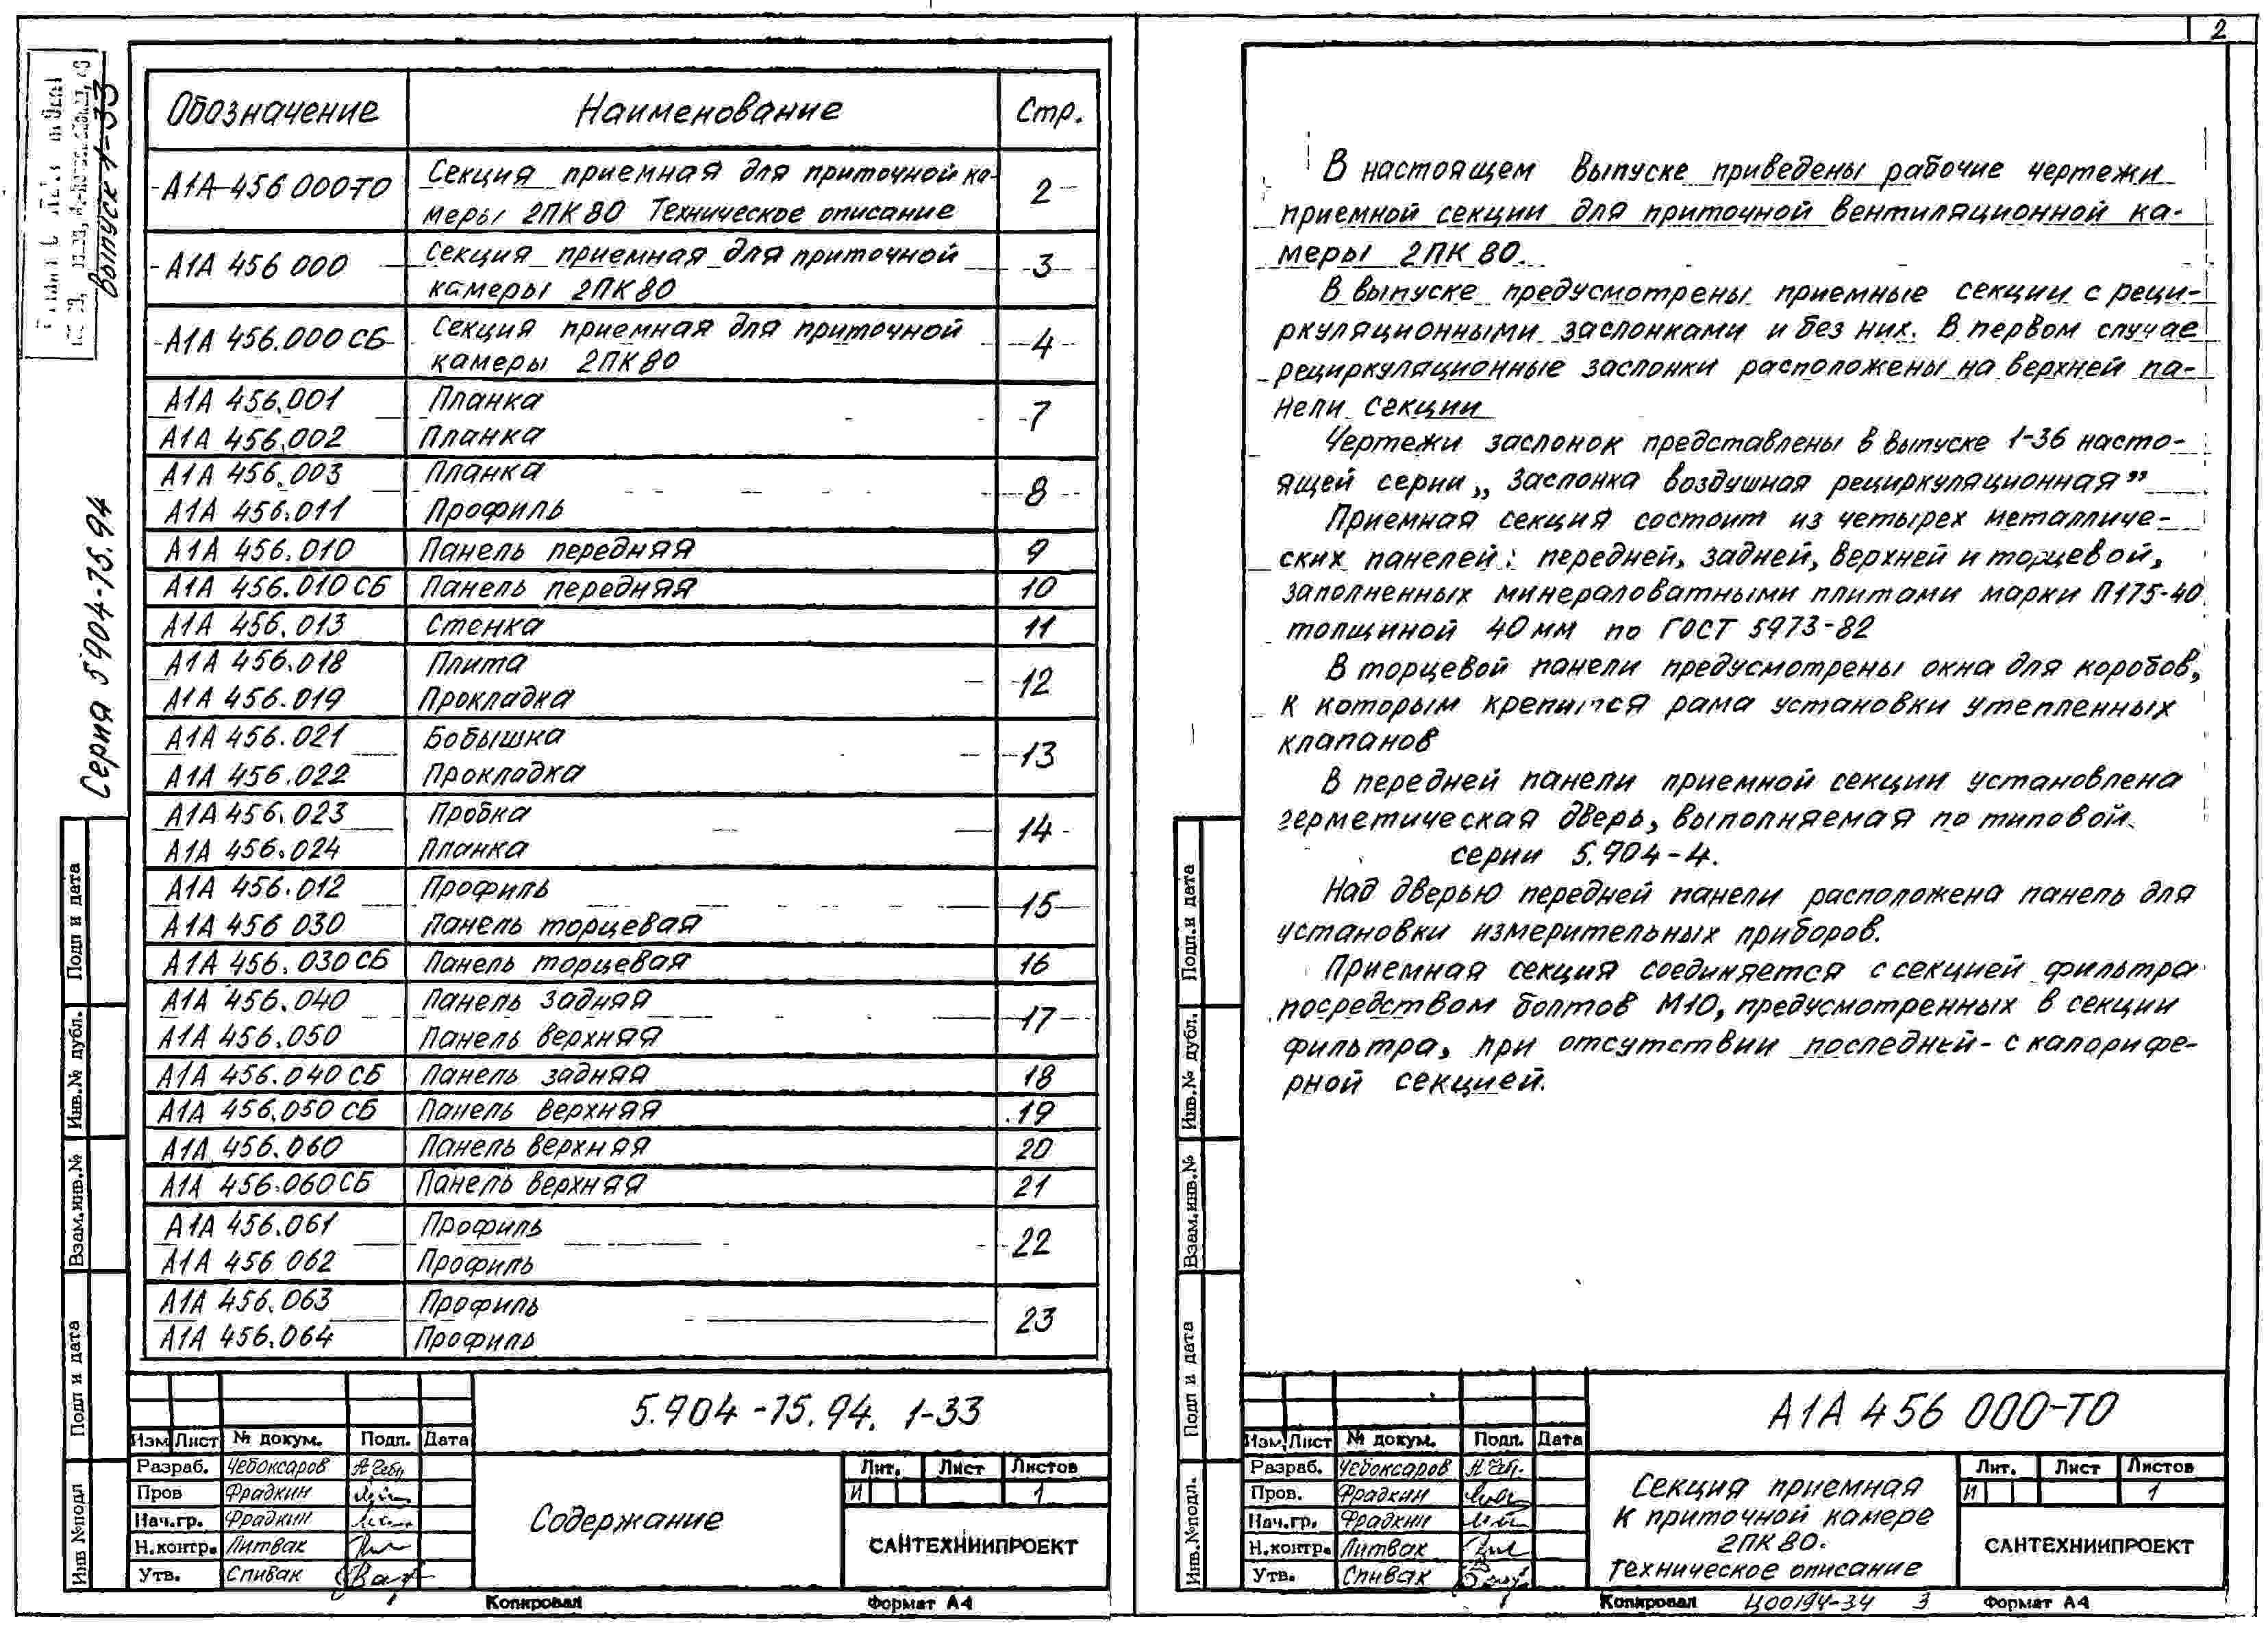 Выпуск 1-33
Серия 5.904-75.94
Обозначение Наименование Стр.
А1А 456 000-ТО Секция приемная для приточной ка-
меры 2ПК80 Техническое описание 2
А1А 456 000 Секция приемная для приточной
камеры 2ПК80 3
А1А 456.000 СБ Секция приемная для приточной
камеры 2ПК80 4
А1А 456.001 Планка 7
А1А 456.002 Планка
А1А 456.003 Планка 8
А1А 456.011 Профиль
А1А 456.010 Панель передняя 9
А1А 456.010 СБ Панель передняя 10
А1А 456.013 Стенка 11
А1А 456.018 Плита 12
А1А 456.019 Прокладка
А1А 456.021 Бобышка 13
А1А 456.022 Прокладка
А1А 456.023 Пробка 14
А1А 456.024 Планка
А1А 456.012 Профиль 15
А1А 456 030 Панель торцевая
А1А 456.030 СБ Панель торцевая 16
А1А 456.040 Панель задняя 17
А1А 456.050 Панель верхняя
А1А 456.040 СБ Панель задняя 18
А1А 456.050 СБ Панель верхняя 19
А1А 456.060 Панель верхняя 20
А1А 456.060 СБ Панель верхняя 21
А1А 456.061 Профиль 22
А1А 456 062 Профиль
А1А 456.063 Профиль 23
А1А 456.064 Профиль
Подп и дата
Инв.№ дубл.
Взам.инв.№
Подп и дата
Инв №подл
5.904-75.94. 1-33
Изм Лист № докум. Подп. Дата
Разраб. Чебоксаров
Пров Фрадкин
Нач.гр. Фрадкин
Н.контр. Литвак
Утв. Спивак
Содержание
Лит. Лист Листов
И 1
САНТЕХНИИПРОЕКТ
Копировал Формат А4
2
В настоящем выпуске приведены рабочие чертежи
приемной секции для приточной вентиляционной ка-
меры 2ПК 80.
В выпуске предусмотрены приемные секции с реци-
ркуляционными заслонками и без них. В первом случае
рециркуляционные заслонки расположены на верхней па-
нели секции
Чертежи заслонок представлены в выпуске 1-36 насто-
ящей серии „Заслонка воздушная рециркуляционная”
Приемная секция состоит из четырех металличе-
ских панелей: передней, задней, верхней и торцевой,
заполненных минераловатными плитами марки П175-40
толщиной 40мм по ГОСТ 5973-82
В торцевой панели предусмотрены окна для коробов,
к которым крепится рама установки утепленных
клапанов
В передней панели приемной секции установлена
герметическая дверь, выполняемая по типовой
серии 5.904-4.
Над дверью передней панели расположена панель для
установки измерительных приборов.
Приемная секция соединяется с секцией фильтра
посредством болтов М10, предусмотренных в секции
фильтра, при отсутствии последней - с калорифе-
рной секцией.
Подп.и дата
Инв.№ дубл.
Взам.инв.№
Подп и дата
Инв.№подл.
А1А 456 000-ТО
Изм. Лист № докум. Подп. Дата
Разраб. Чебоксаров
Пров. Фрадкин
Нач.гр. Фрадкин
Н.контр. Литвак
Утв. Спивак
Секция приемная
к приточной камере
2ПК 80.
Техническое описание
Лит. Лист Листов
И 1
САНТЕХНИИПРОЕКТ
Копировал Ц00194-34 3 Формат А4